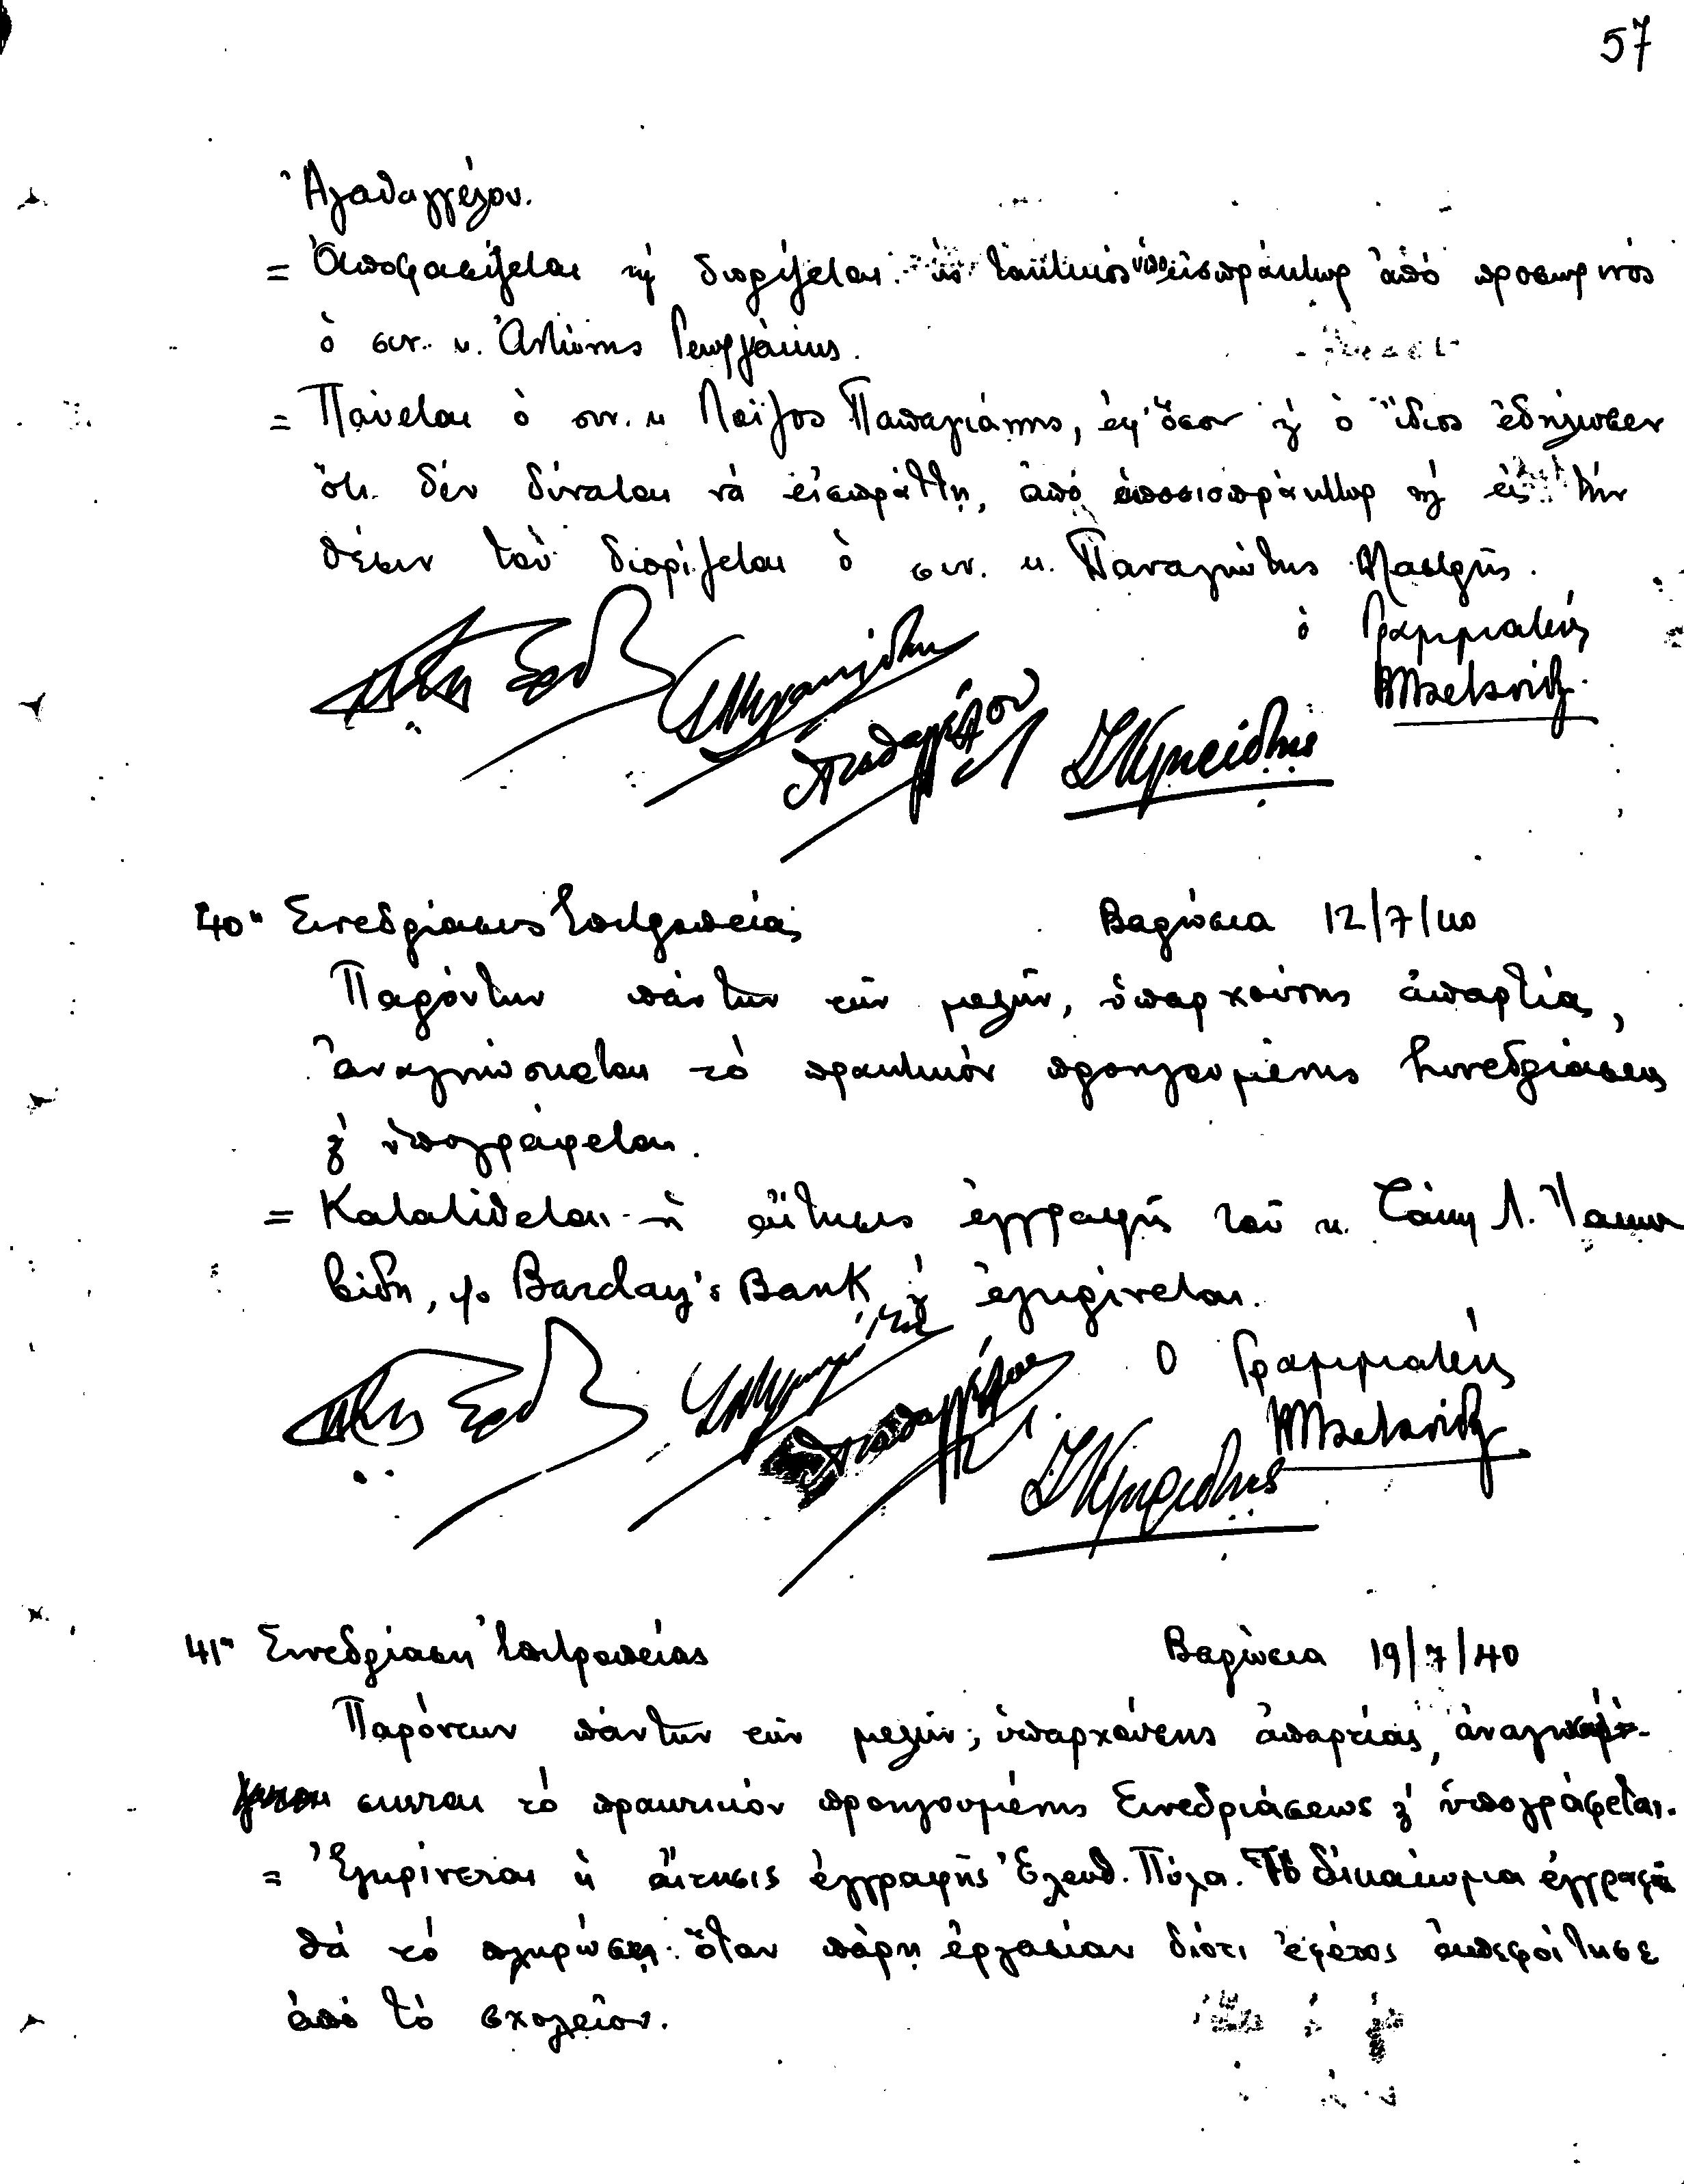 57
Ἀγαθαγγέλου.
= Ἀποφασίζεται κ διορίζεται ὡς τακτικὸς ὑποεισπράκτωρ ἀπό προσωρινός
ὁ συν. κ. Ἀντώνης Γεωργάκης.
= Παύεται ὁ συν. κ Λοΐζος Παπαγιάννης, ἐφ' ὅσον κ ὁ ἴδιος ἐδήλωσεν
ὅτι δέν δύναται νά εἰσπράττῃ, ἀπό ὑποεισπράκτωρ κ εἰς τήν
θέσιν τοῦ διορίζεται ὁ συν. κ. Παναγιώτης Μαστρῆς.
ὁ Γραμματεύς
40η Συνεδρίασις Ἐπιτροπείας Βαρώσια 12/7/40
Παρόντων πάντων τῶν μελῶν, ὑπαρχούσης ἀπαρτίας,
ἀναγινώσκεται τό πρακτικόν προηγουμένης Συνεδριάσεως
κ ὑπογράφεται.
= Κατατίθεται ἡ αἴτησις ἐγγραφῆς τοῦ κ. Τάκη Λ. Ἰακω
βίδη, c/o Barclay's Bank κ ἐγκρίνεται.
Ὁ Γραμματεύς
41η Συνεδρίαση Ἐπιτροπείας Βαρώσια 19/7/40
Παρόντων πάντων τῶν μελῶν, ὑπαρχούσης ἀπαρτίας, ἀναγινώ-
σκεται τό πρακτικόν προηγουμένης Συνεδριάσεως κ ὑπογράφεται.
= Ἐγκρίνεται ἡ αἴτησις ἐγγραφῆς Ἐλευθ. Πύλα. Τό δικαίωμα ἐγγραφῆς
θά τό πληρώσῃ ὅταν πάρῃ ἐργασίαν διότι ἐφέτος ἀπεφοίτησε
ἀπό τό σχολεῖον.